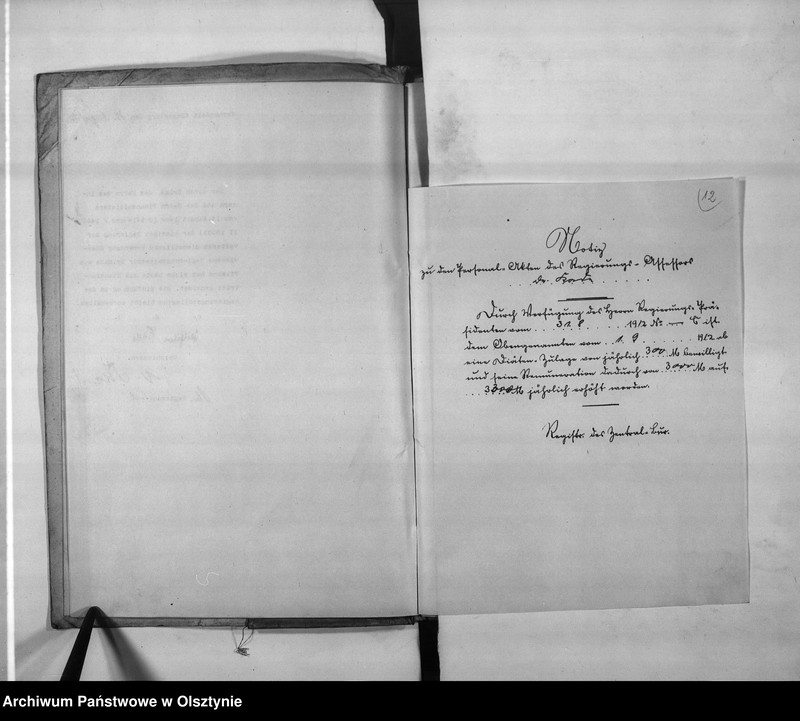 12
Notiz
zu den Personal-Akten des Regierungs-Assessors
Dr.
Durch Verfügung des Herrn Regierungs-Prä-
sidenten vom 31. 8. 1912 ist
dem Obengenannten vom 1. 9. 1912 ab
eine Diäten-Zulage von jährlich 300 M bewilligt
und seine Remuneration dadurch von 3000 M auf
3300 M jährlich erhöht worden.
Registr. des Zentral-Bur.
Archiwum Państwowe w Olsztynie